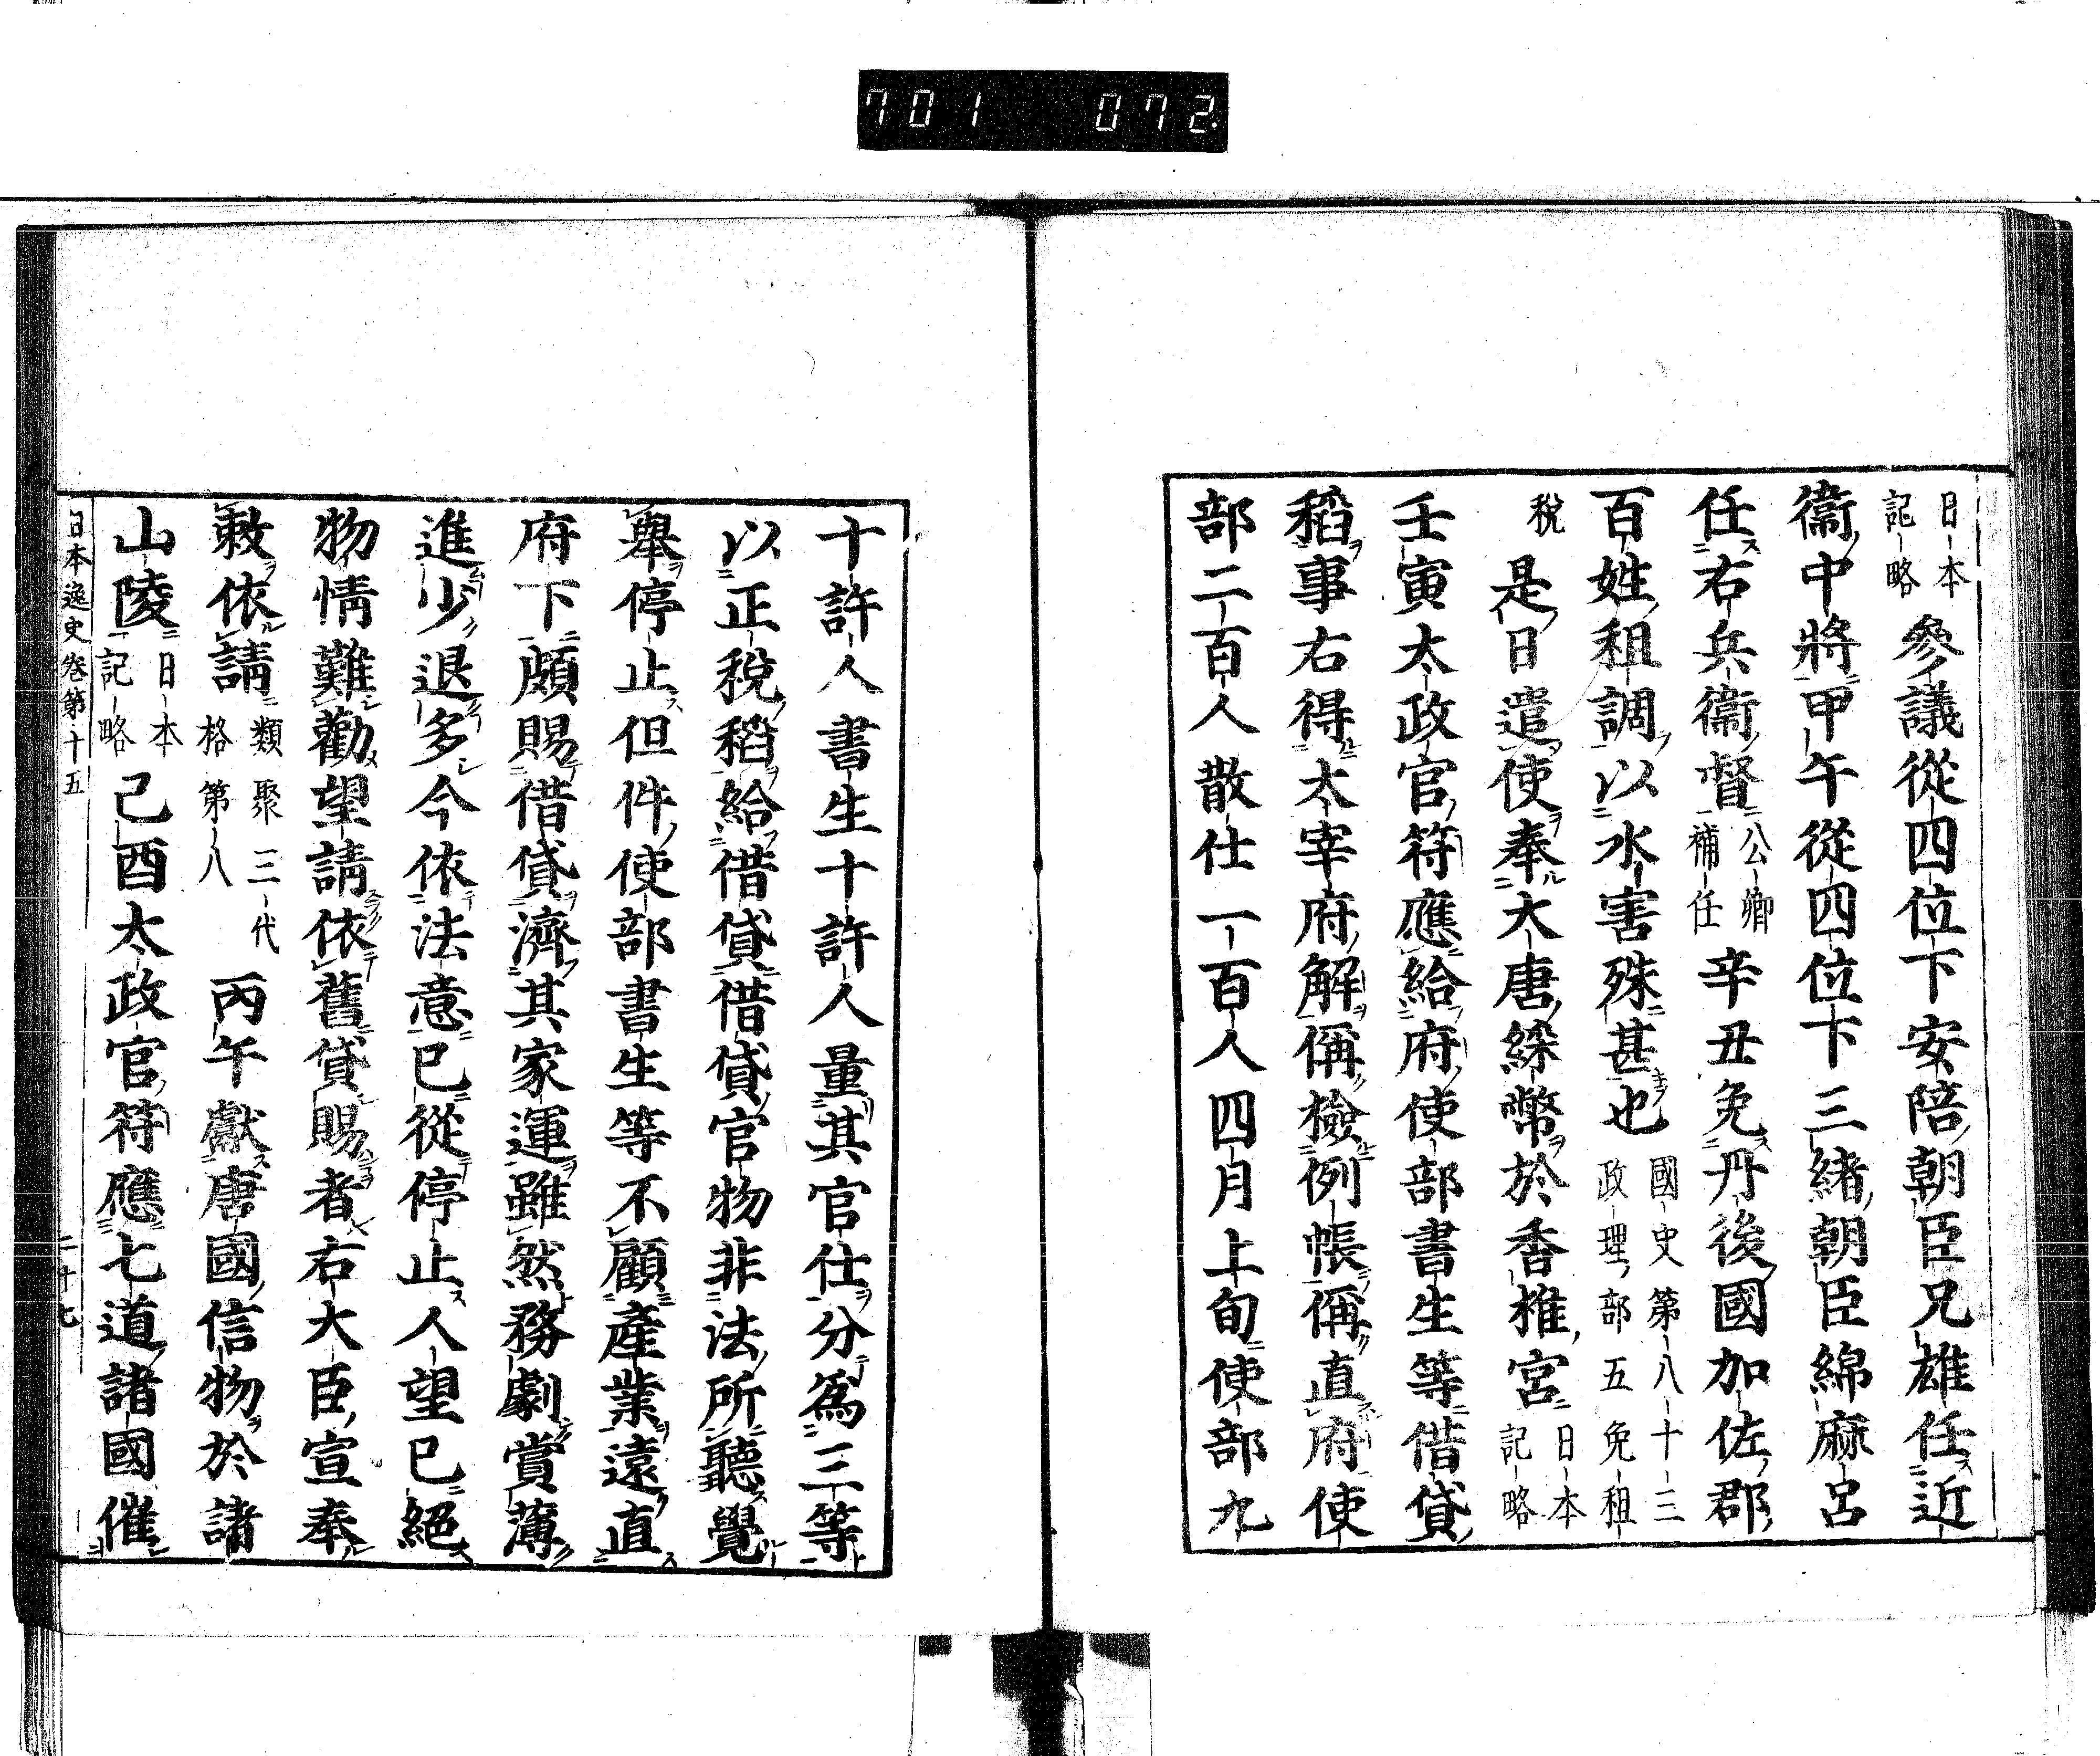 701 072
日本記略參議從四位下安陪朝臣兄雄任近
衞中將甲午從四位下三緒朝臣綿麻呂
任右兵衞督公卿補任辛丑免丹後國加佐郡
百姓租調以水害殊甚也國史第八十三政理部五免租
稅是日遣使奉大唐綵幣於香椎宮日本記略
壬寅太政官符應給府使部書生等借貸
稻事右得太宰府解偁檢例帳偁直府使
部二百人散仕一百人四月上旬使部九
十許人書生十許人量其官仕分爲三等
以正稅稻給借貸借貸官物非法所聽覺
舉停止但件使部書生等不顧產業遠直
府下頗賜借貸濟其家運雖然務劇賞薄
進少退多今依法意已從停止人望已絕
物情難勸望請依舊貸賜者右大臣宣奉
敕依請類聚三代格第八丙午獻唐國信物於諸
山陵日本記略己酉太政官符應七道諸國催
日本逸史卷第十五 二十七